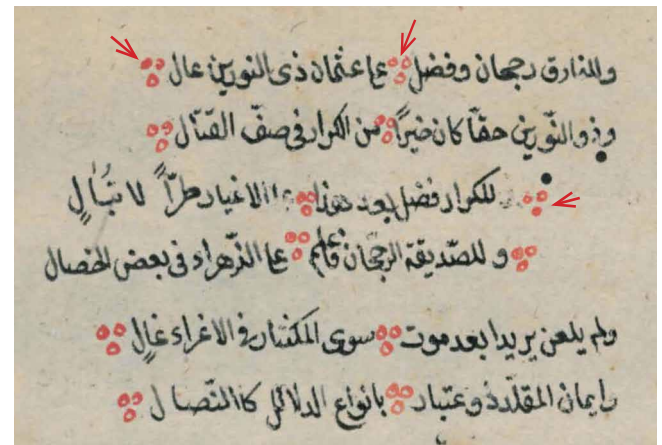 وللفارق رجحان وفضل على عثمان ذى النورين عال
وذو النّورين حقّا كان خيرًا من الكرار فى صفّ القتال
للكرار فضل بعد هذا على الاغيار طرّاً لا تبال
و للصّديقة الرجحان فاعلم على الزّهراء فى بعض الخصال
ولم يلعن يزيدا بعد موت سوى المكثار فى الاغراء غال
وايمان المقلّد ذو عتبار بانواع الدلائل كالنّصال